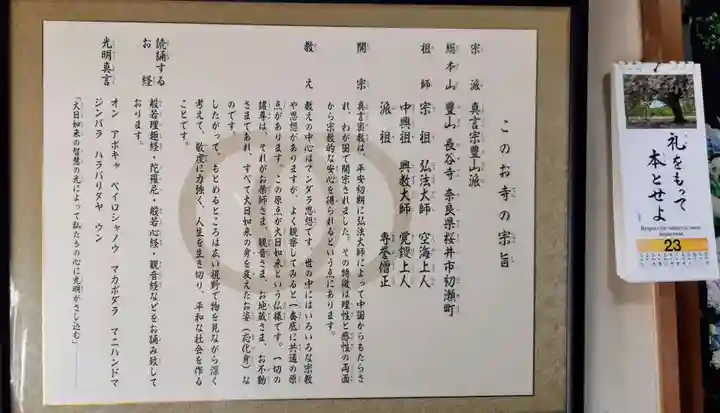 このお寺の宗旨
宗派 真言宗豊山派
総本山 豊山 長谷寺 奈良県桜井市初瀬町
祖師 宗祖 弘法大師 空海上人
中興祖 興教大師 覚鑁上人
派祖 専誉僧正
開宗 真言密教は、平安初期に弘法大師によって中国からもたらさ
れ、わが国で開宗されました。その特徴は理性と感性の両面
から宗教的な安心を得られるという点にあります。
教え 教えの中心はマンダラ思想です。世の中にはいろいろな宗教
や思想がありますが、よく観察してみると一番底に共通の原
点があります。この原点が大日如来という仏様です。一切の
諸尊は、それがお薬師さま、観音さま、お地蔵さま、お不動
さまであれ、すべて大日如来の身を変えたお姿(応化身)な
のです。
したがって、もとめるところは広い視野で物を見ながら深く
考えて、敬虔に力強く、人生を生き切り、平和な社会を作る
ことです。
読誦するお経 般若理趣経・陀羅尼・般若心経・観音経などをお誦み致して
おります。
光明真言 オン アボキャ ベイロシャノウ マカボダラ マニハンドマ
ジンバラ ハラバリタヤ ウン
「大日如来の智慧の光によって私たちの心に光明がさし込む」
礼をもって
本とせよ
23